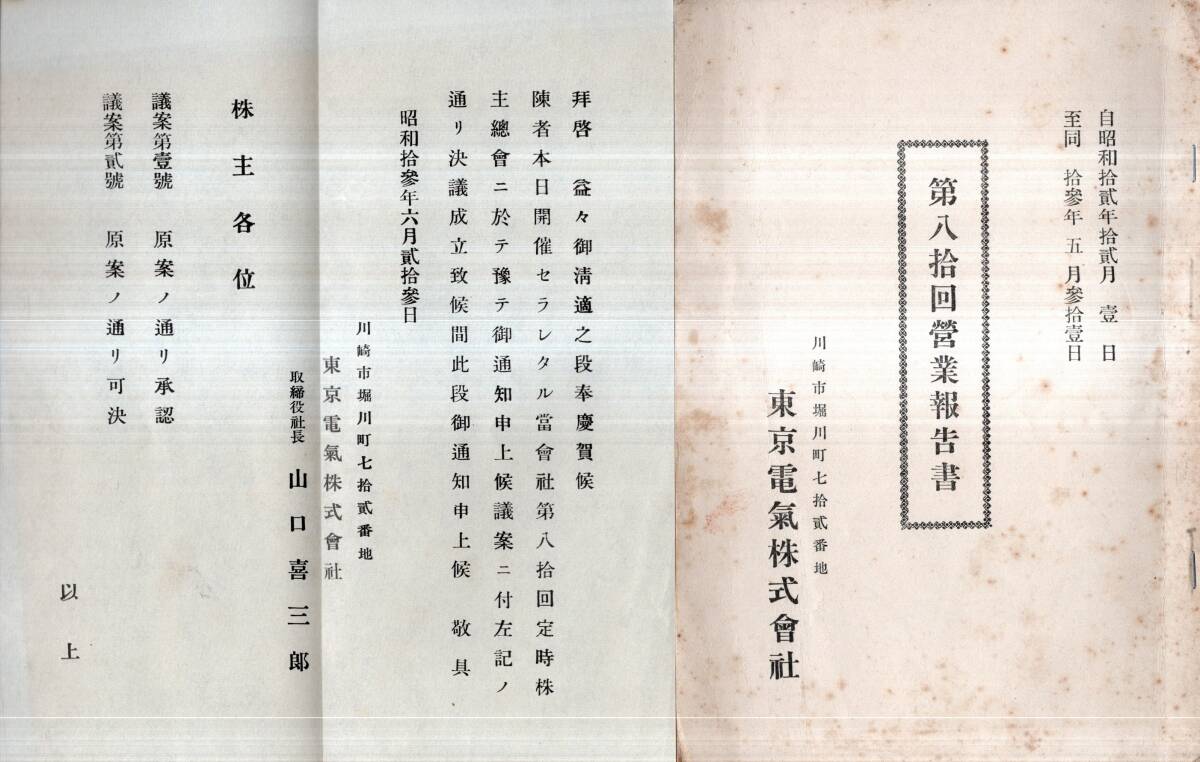 自昭和拾貳年拾貳月壹日
至同拾參年五月參拾壹日
第八拾回營業報告書
川崎市堀川町七拾貳番地
東京電氣株式會社
拜啓 益々御淸適之段奉慶賀候
陳者本日開催セラレタル當會社第八拾回定時株
主總會ニ於テ豫テ御通知申上候議案ニ付左記ノ
通リ決議成立致候間此段御通知申上候 敬具
昭和拾參年六月貳拾參日
川崎市堀川町七拾貳番地
東京電氣株式會社
取締役社長 山口喜三郞
株主各位
議案第壹號 原案ノ通リ承認
議案第貳號 原案ノ通リ可決
以上